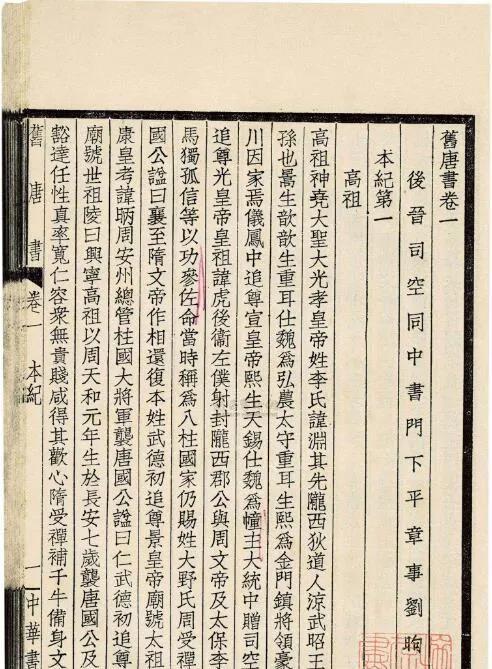 舊唐書卷一
後晉司空同中書門下平章事劉昫
本紀第一
高祖
高祖神堯大聖大光孝皇帝姓李氏諱淵其先隴西狄道人涼武昭
孫也暠生歆歆生重耳仕魏爲弘農太守重耳生熙爲金門鎮將領豪
川因家焉儀鳳中追尊宣皇帝熙生天錫仕魏爲幢主大統中贈司空
追尊光皇帝皇祖諱虎後衞左僕射封隴西郡公與周文帝及太保李
馬獨孤信等以功參佐命當時稱爲八柱國家仍賜姓大野氏周受禪
國公諡曰襄至隋文帝作相還復本姓武德初追尊景皇帝廟號太祖
康皇考諱昞周安州總管柱國大將軍襲唐國公諡曰仁武德初追尊
廟號世祖陵曰興寧高祖以周天和元年生於長安七歲襲唐國公及
豁達任性真率寬仁容衆無貴賤咸得其歡心隋受禪補千牛備身文
舊唐書 卷一 本紀 一 中華書